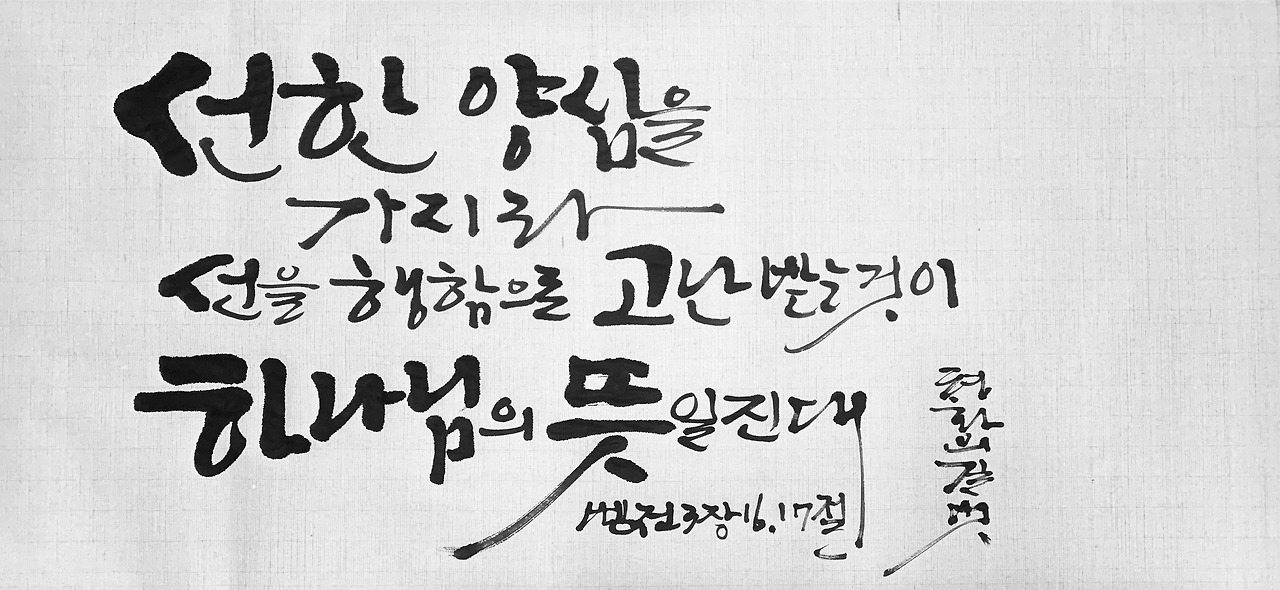 선한 양심을
가지라
선을 행함으로 고난 받는 것이
하나님의 뜻일진대
벧전 3장 16, 17절